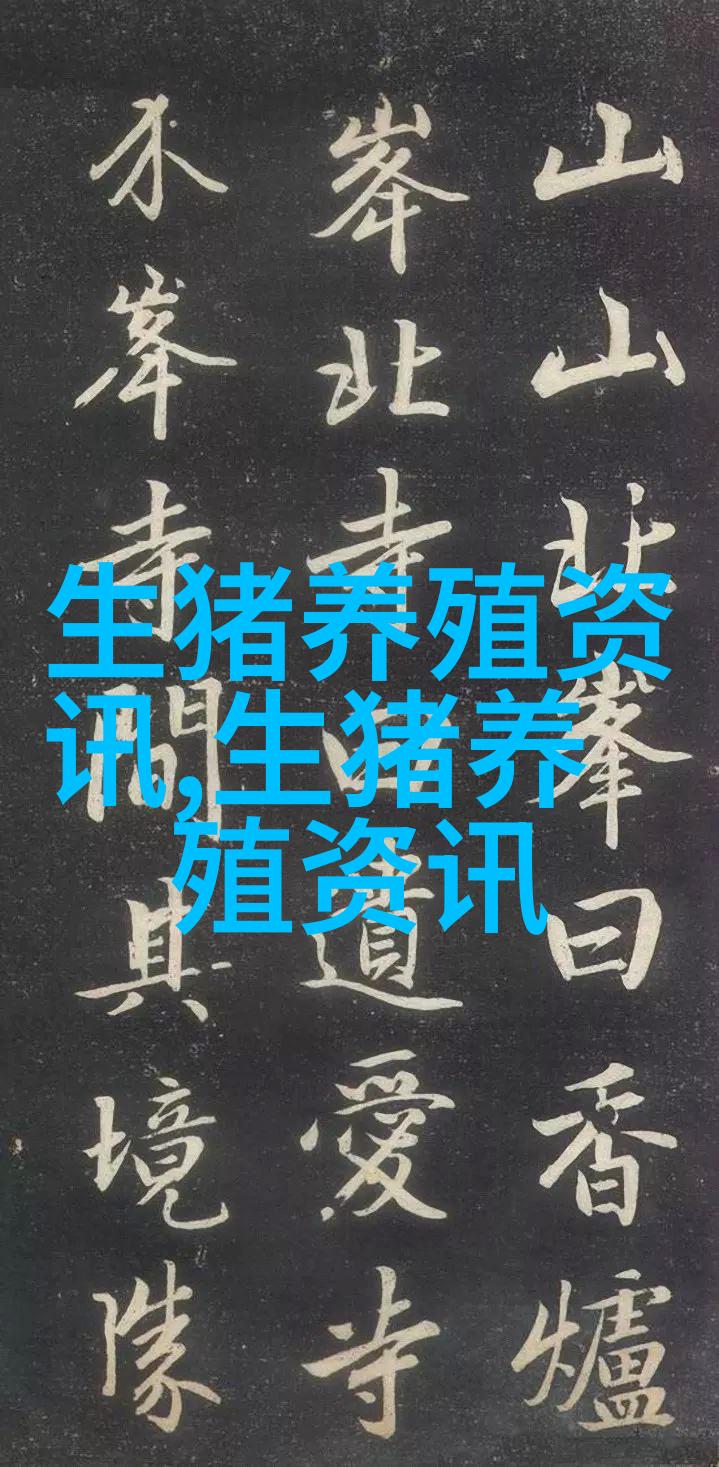 山山北峯曰香爐
峯北寺曰遺愛寺
介峯寺間其境勝
生猪养殖资
讯,生猪养
殖资讯